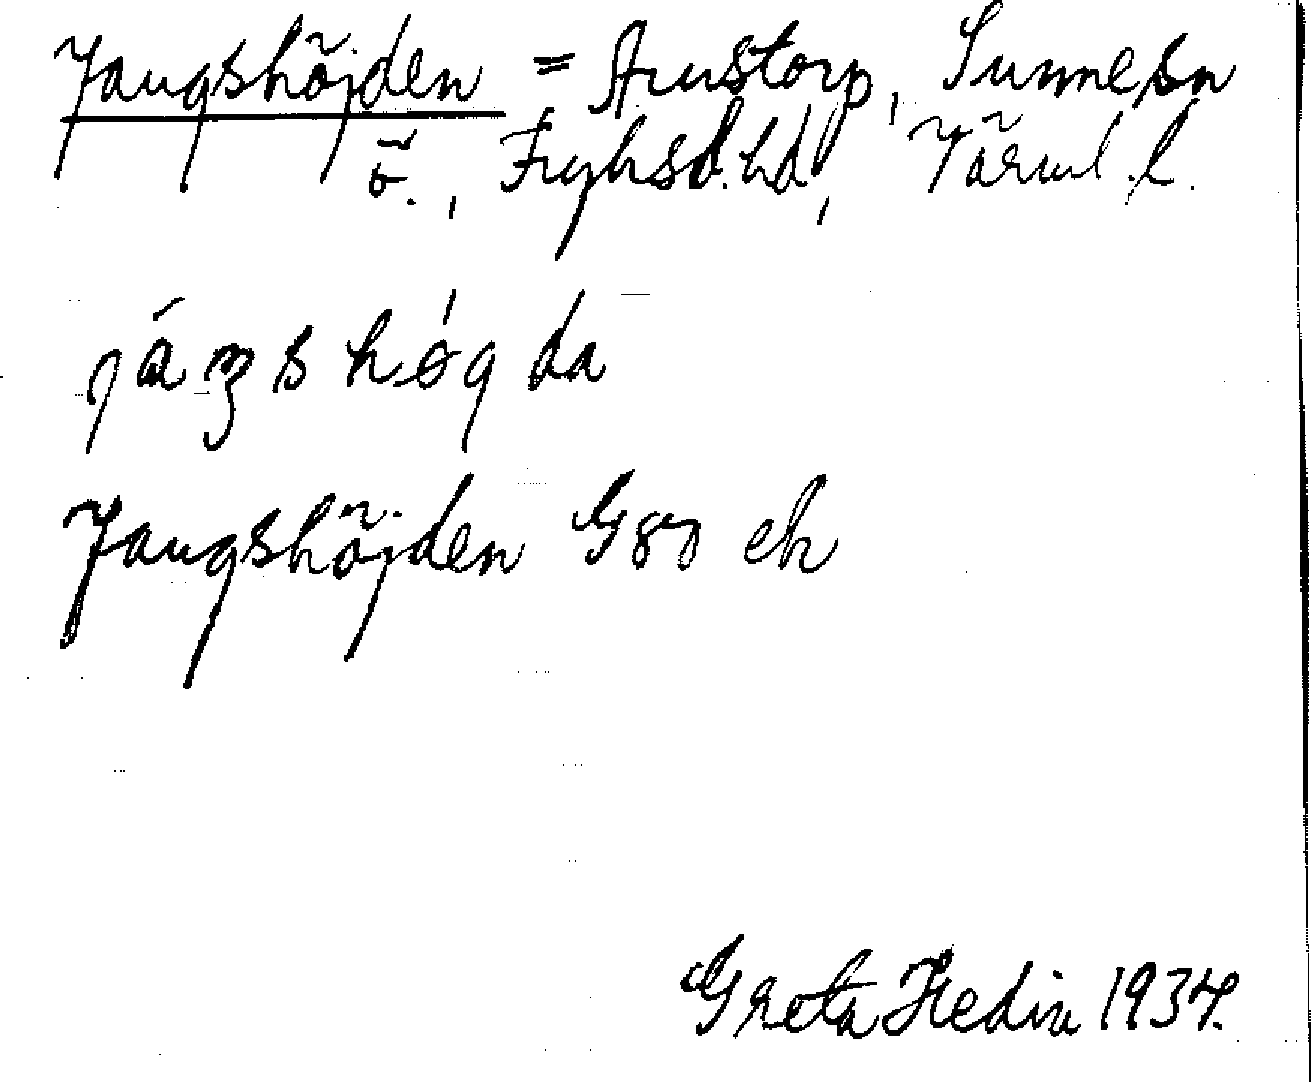 Jangshöjden = Arnstorp, Sunne sn
ö., Fryksd. hd, Värml. l.
Jangshöjden G 87 ek
Greta Hedin 1934.